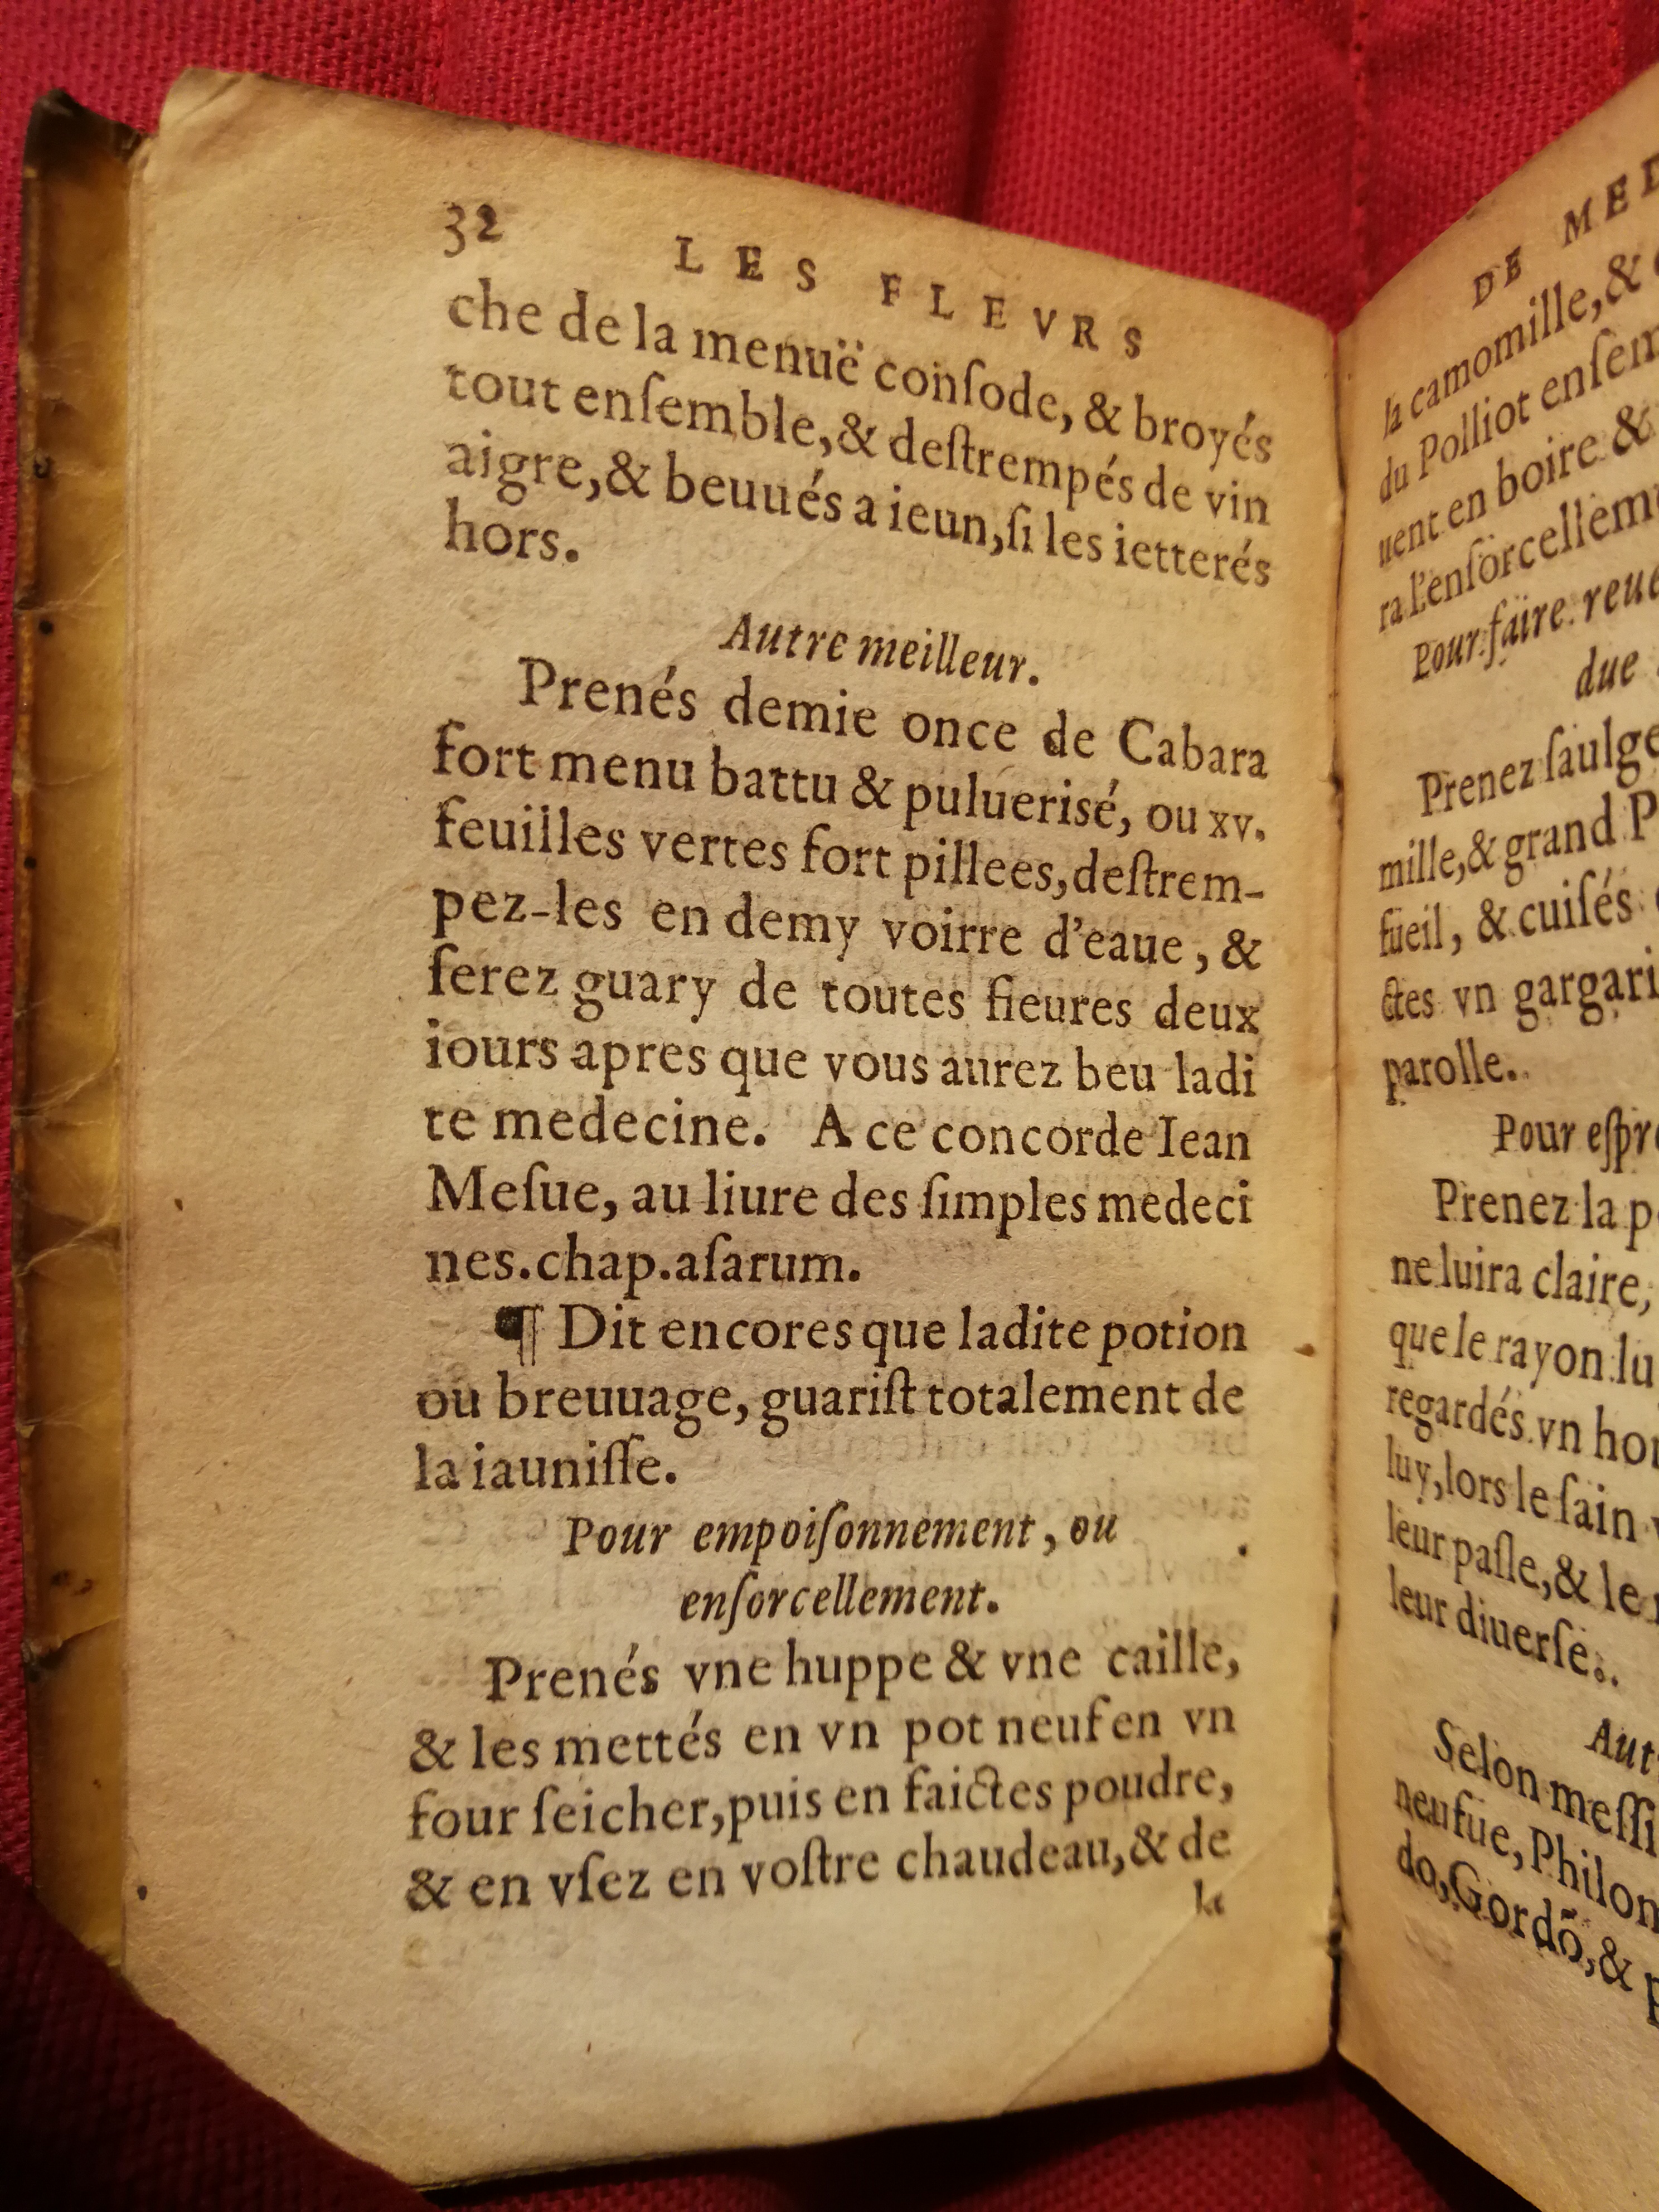 32
LES FLEVRS
che de la menuë conſode, & broyés
tout enſemble, & deſtrempés de vin
aigre, & beuués a ieun, ſi les ietterés
hors.
Autre meilleur.
Prenés demie once de Cabara
fort menu battu & puluerisé, ou xv.
feuilles vertes fort pillees, deſtrem-
pez-les en demy voirre d'eaue, &
ſerez guary de toutes fieures deux
iours apres que vous aurez beu ladi
te medecine. A ce concorde Iean
Meſue, au liure des ſimples medeci
nes. chap. aſarum.
¶ Dit encores que ladite potion
ou breuuage, guariſt totalement de
la iauniſſe.
Pour empoiſonnement, ou
enſorcellement.
Prenés vne huppe & vne caille,
& les mettés en vn pot neuf en vn
four ſeicher, puis en faictes poudre,
& en vſez en voſtre chaudeau, & de
DE MED
la camomille, &
du Polliot enſem
uent en boire &
ra l'enſorcellem
Pour faire reue
due
Prenez ſaulge
mille, & grand P
fueil, & cuiſés
ctes vn gargari
parolle.
Pour eſpr
Prenez la p
ne luira claire,
que le rayon lu
regardés vn ho
luy, lors le ſain
leur paſle, & le
leur diuerſe.
Aut
Selon meſſi
neufue, Philon
do, Gordõ, & p